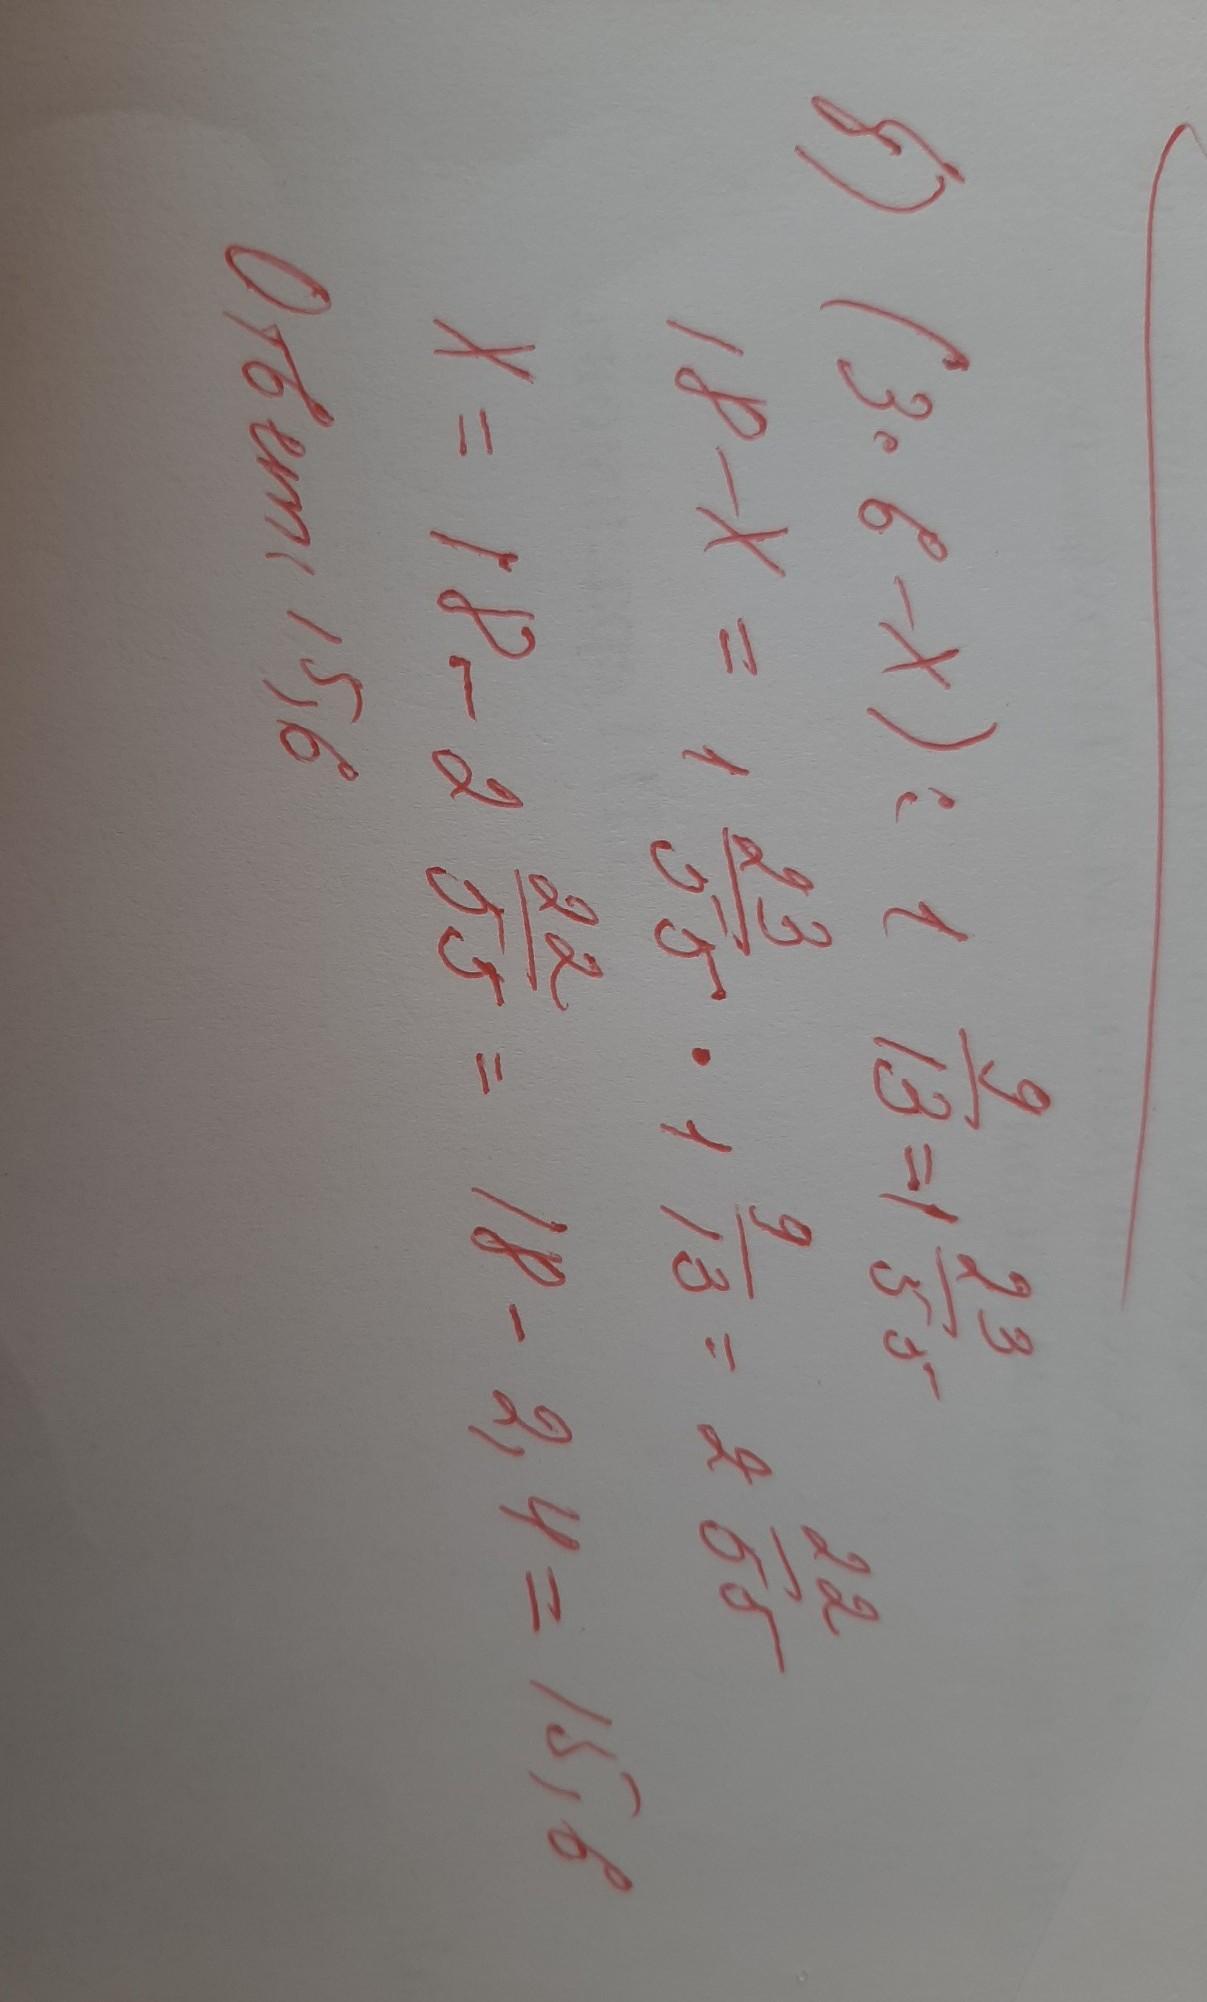 б) (3·6-x): 1 9/13 = 1 23/55
18-x = 1 23/55 · 1 9/13 = 2 22/55
x = 18-2 22/55 = 18-2,4 = 15,6
Ответ: 15,6